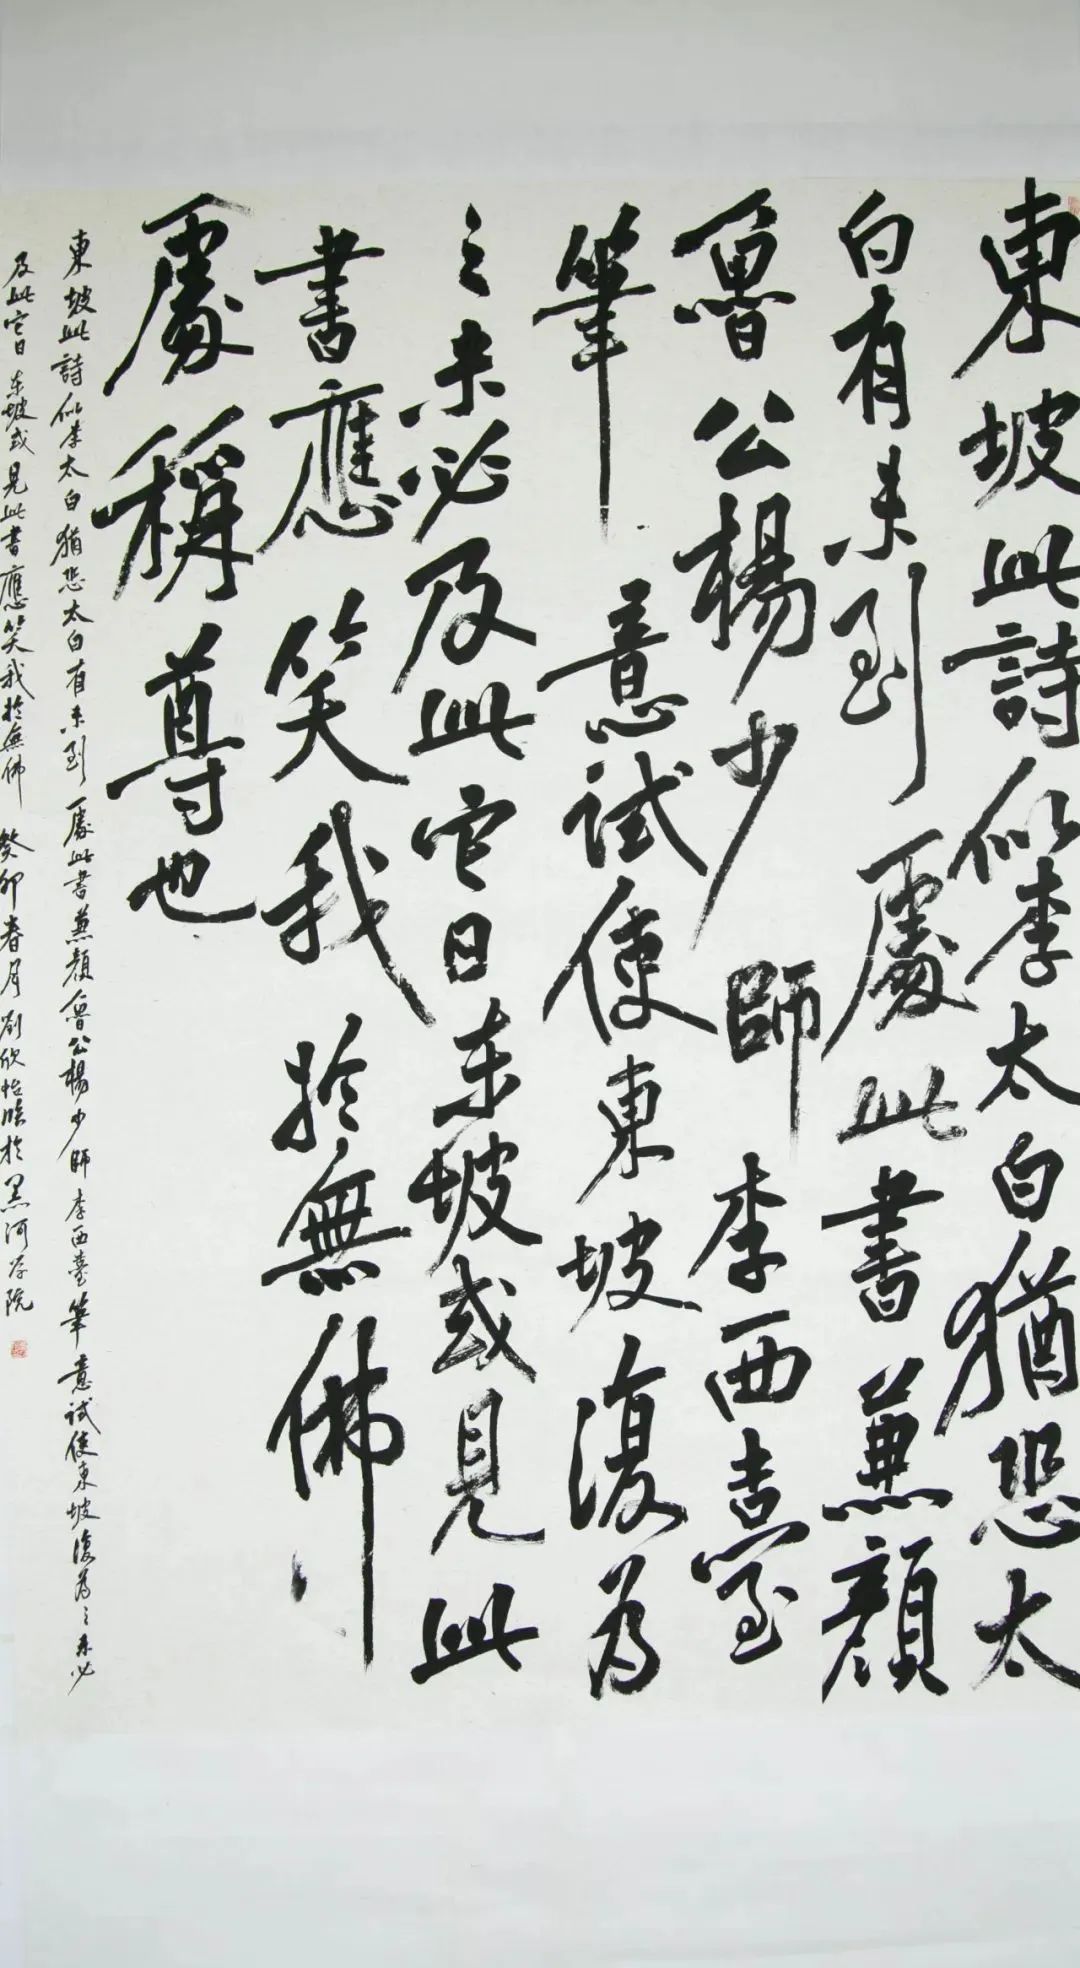 東坡此詩似李太白猶恐太
白有未到處此書兼顏
魯公楊少師李西臺
筆意試使東坡復為
之未必及此它日东坡或見此
書應笑我於無佛
處稱尊也
東坡此詩似李太白猶恐太白有未到處此書兼顏魯公楊少師李西臺筆意試使東坡復為之未必
及此它日东坡或見此書應笑我於無佛癸卯春月刘欣怡臨於黑河学院